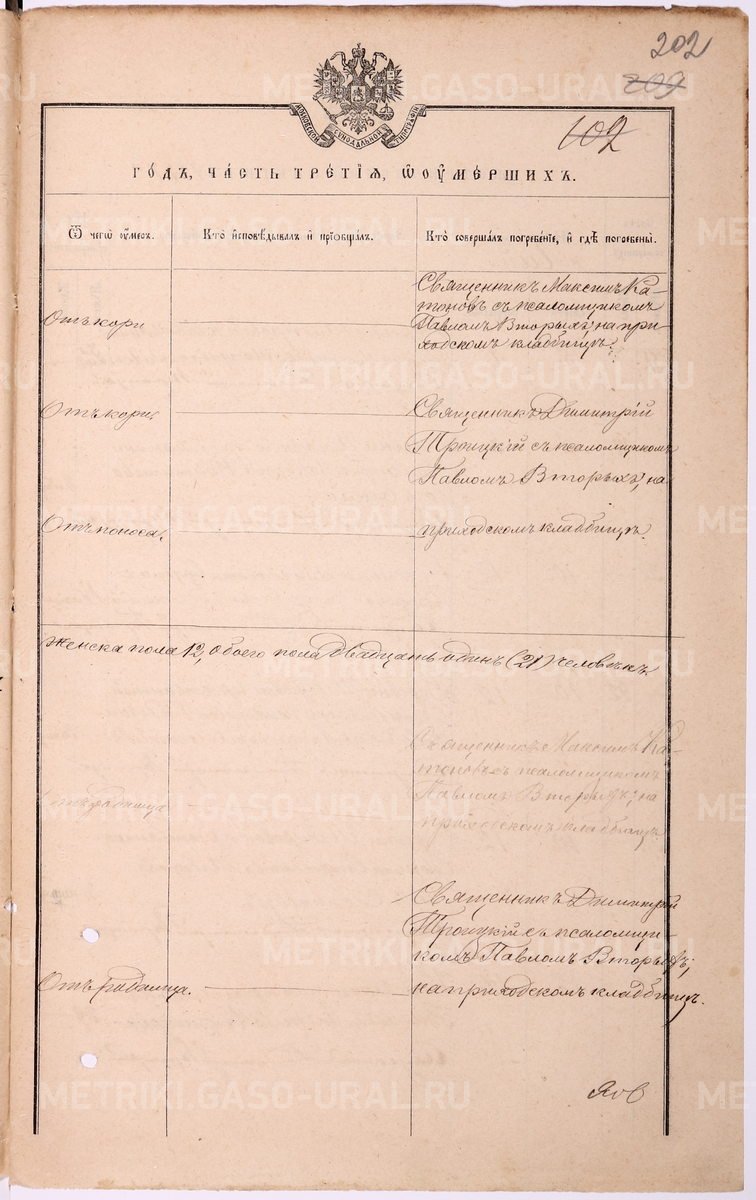 202
209
102
МОСКОВСКОЙ СѴНОДАЛЬНОЙ ТИПОГРАФІИ
ГОДЪ, ЧАСТЬ ТРЕТІЯ, Ѿ ОУМЕРШИХЪ.
Ѿ чегѡ оумеръ.
Кто исповѣдывалъ и пріобщалъ.
Кто совершалъ погребеніе, и гдѣ погребены.
Священникъ Максимъ Ка-
тоновъ съ псаломщикомъ
Отъ кори
Павломъ Вторыхъ; на при-
ходскомъ кладбищѣ.
Отъ кори.
Священникъ Димитрій
Троицкій съ псаломщикомъ
Павломъ Вторыхъ, на
Отъ поноса.
приходскомъ кладбищѣ.
Женска пола 12, обоего пола двадцать одинъ (21) человѣкъ.
Священникъ Максимъ Ка-
тоновъ съ псаломщикомъ
Павломъ Вторыхъ; на
приходскомъ кладбищѣ.
Священникъ Димитрій
Троицкій съ псаломщи-
комъ Павломъ Вторыхъ,
Отъ
на приходскомъ кладбищѣ.
METRIKI.GASO-URAL.RU